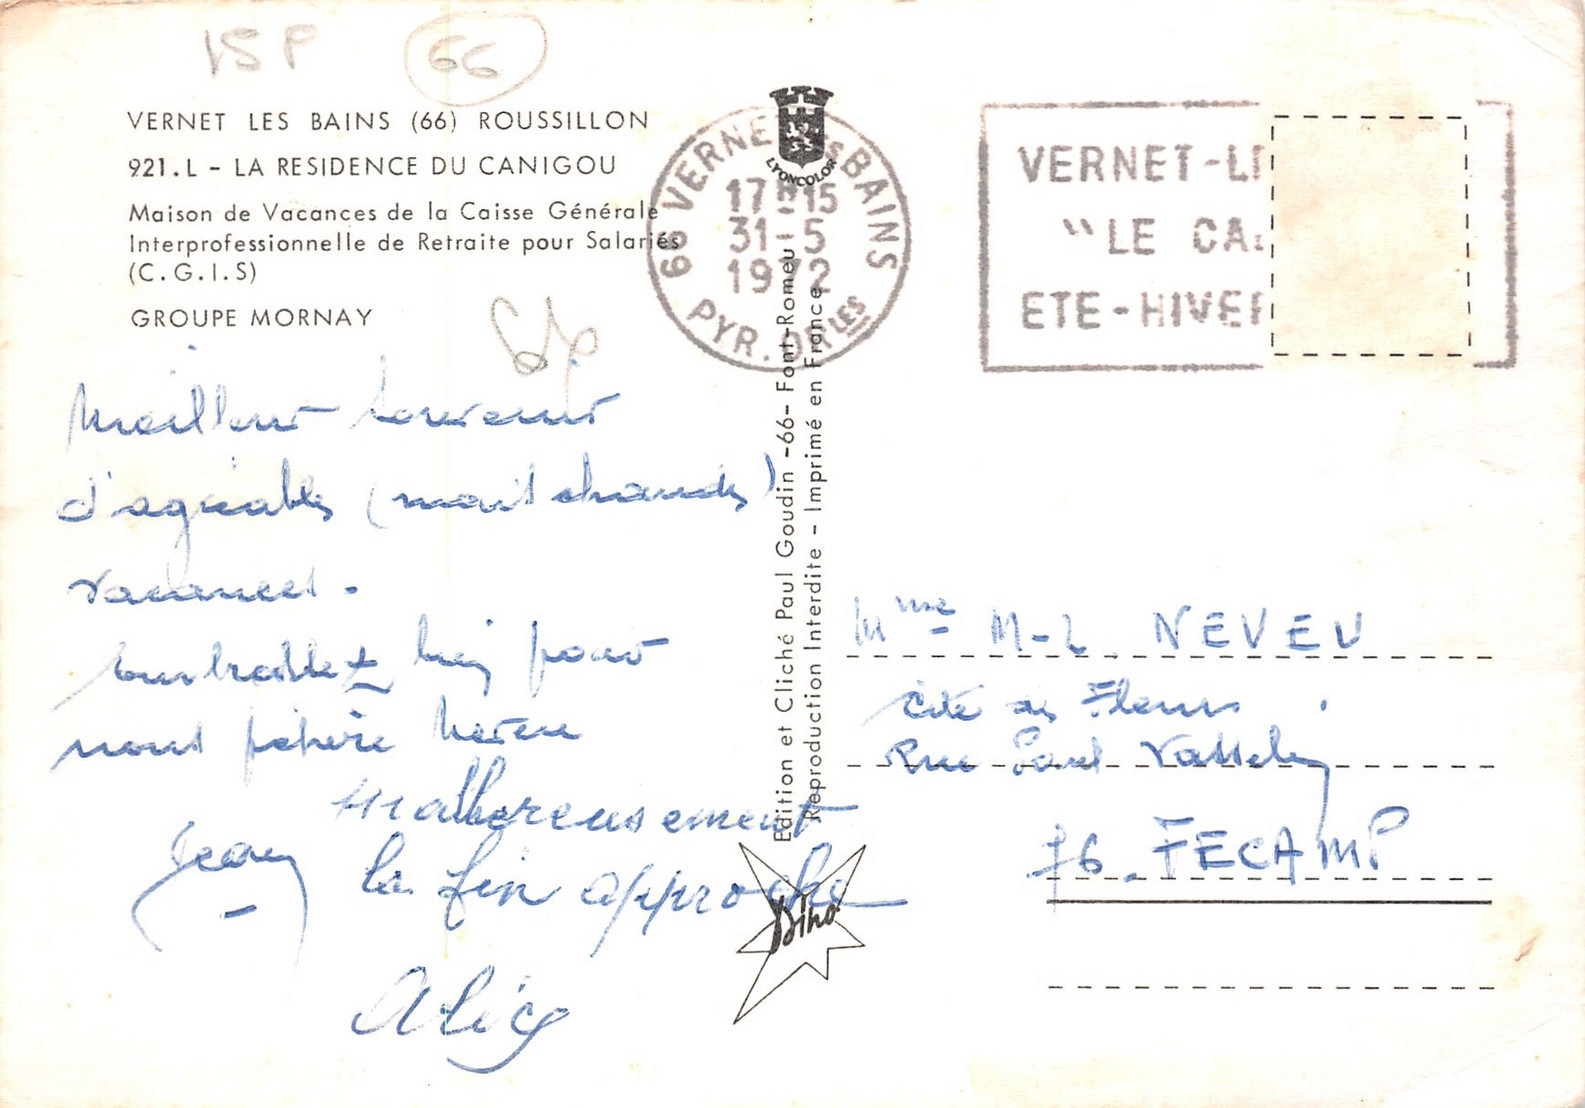 VSP 66
VERNET LES BAINS (66) ROUSSILLON
921.L - LA RESIDENCE DU CANIGOU
Maison de Vacances de la Caisse Générale
Interprofessionnelle de Retraite pour Salariés
(C.G.I.S)
GROUPE MORNAY
66
Meilleurs souvenirs
d'agréables (mais chaudes)
vacances.
bien pour
nous
malheureusement
la fin approche
Jean
Alice
LYONCOLOR
66 VERNET LES BAINS
17H15
31-5
1972
PYR. ORLES
VERNET-L
"LE CA
ETE-HIVER
Edition et Cliché Paul Goudin -66- Font-Romeu
Reproduction Interdite - Imprimé en France
Dino
Mme M-L. NEVEU
Cité des Fleurs
Rue Paul
76. FECAMP